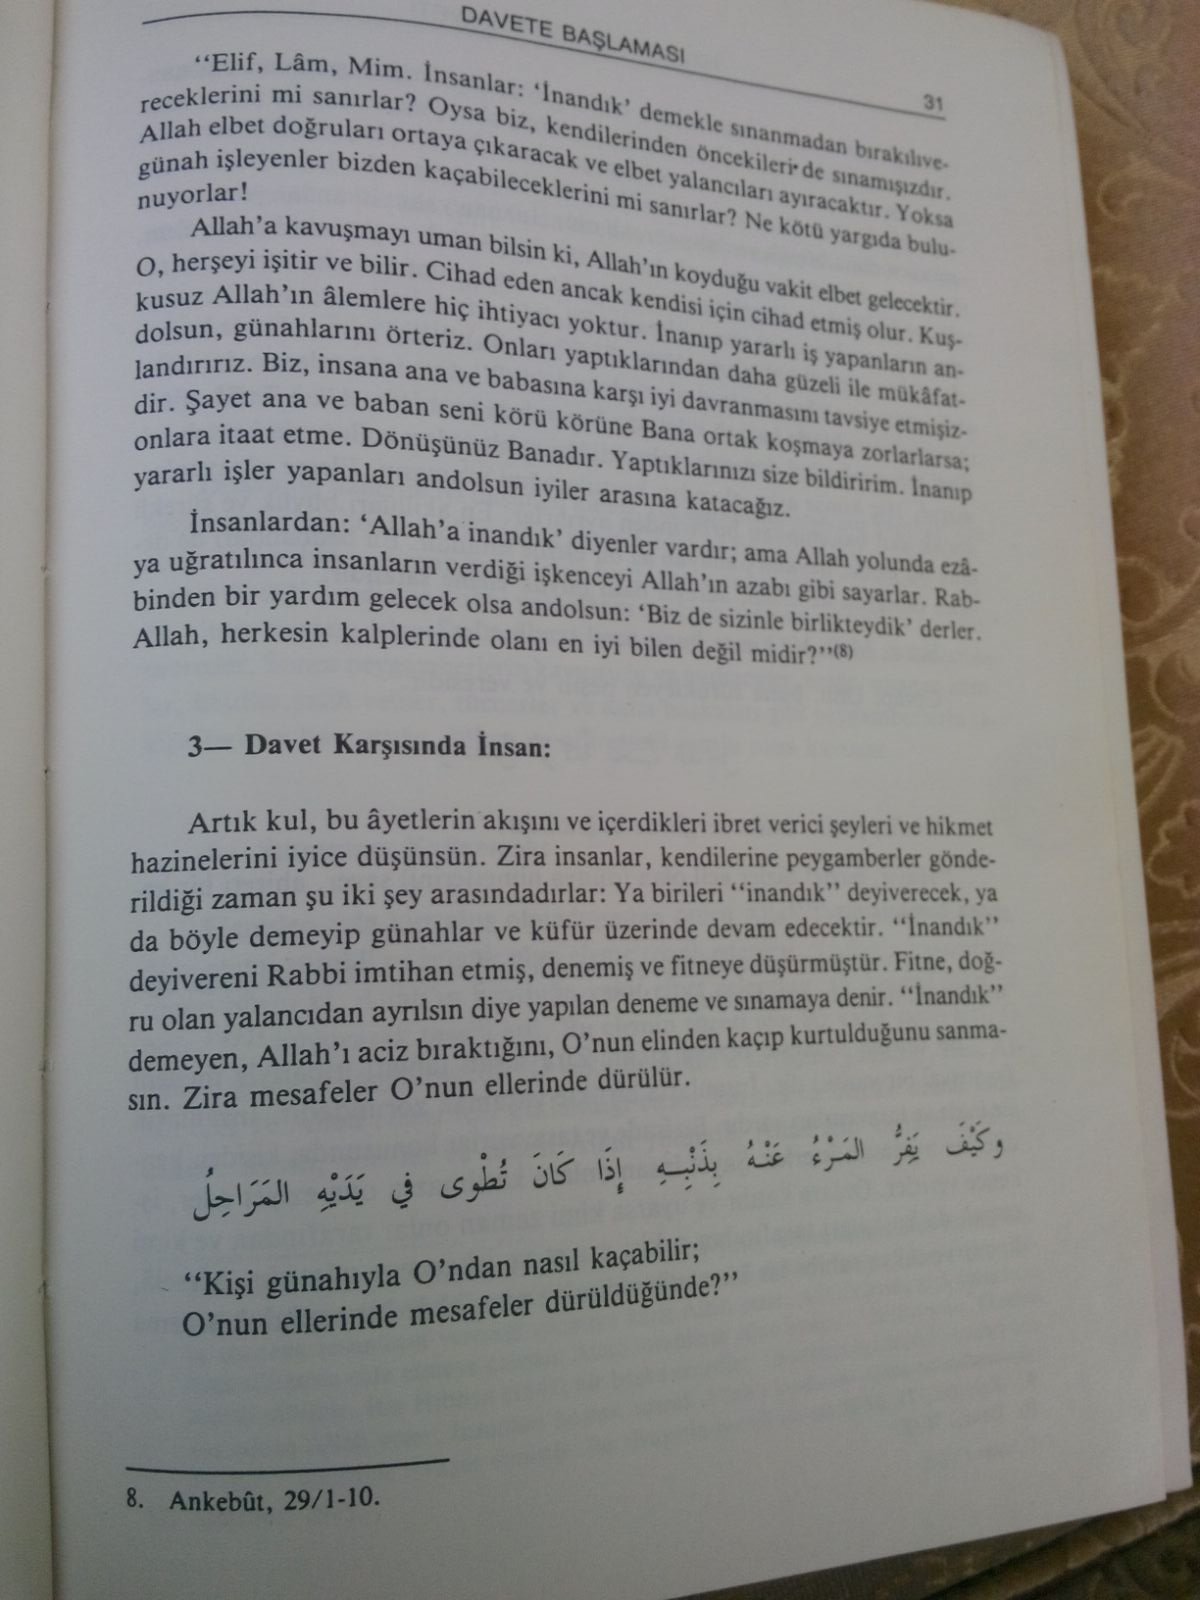 DAVETE BAŞLAMASI
31
‘‘Elif, Lâm, Mim. İnsanlar: ‘İnandık’ demekle sınanmadan bırakılıve-
receklerini mi sanırlar? Oysa biz, kendilerinden öncekileri de sınamışızdır.
Allah elbet doğruları ortaya çıkaracak ve elbet yalancıları ayıracaktır. Yoksa
günah işleyenler bizden kaçabileceklerini mi sanırlar? Ne kötü yargıda bulu-
nuyorlar!
Allah’a kavuşmayı uman bilsin ki, Allah’ın koyduğu vakit elbet gelecektir.
O, herşeyi işitir ve bilir. Cihad eden ancak kendisi için cihad etmiş olur. Kuş-
kusuz Allah’ın âlemlere hiç ihtiyacı yoktur. İnanıp yararlı iş yapanların an-
dolsun, günahlarını örteriz. Onları yaptıklarından daha güzeli ile mükâfat-
landırırız. Biz, insana ana ve babasına karşı iyi davranmasını tavsiye etmişiz-
dir. Şayet ana ve baban seni körü körüne Bana ortak koşmaya zorlarlarsa;
onlara itaat etme. Dönüşünüz Banadır. Yaptıklarınızı size bildiririm. İnanıp
yararlı işler yapanları andolsun iyiler arasına katacağız.
İnsanlardan: ‘Allah’a inandık’ diyenler vardır; ama Allah yolunda ezâ-
ya uğratılınca insanların verdiği işkenceyi Allah’ın azabı gibi sayarlar. Rab-
binden bir yardım gelecek olsa andolsun: ‘Biz de sizinle birlikteydik’ derler.
Allah, herkesin kalplerinde olanı en iyi bilen değil midir?’’(8)
3— Davet Karşısında İnsan:
Artık kul, bu âyetlerin akışını ve içerdikleri ibret verici şeyleri ve hikmet
hazinelerini iyice düşünsün. Zira insanlar, kendilerine peygamberler gönde-
rildiği zaman şu iki şey arasındadırlar: Ya birileri ‘‘inandık’’ deyiverecek, ya
da böyle demeyip günahlar ve küfür üzerinde devam edecektir. ‘‘İnandık’’
deyivereni Rabbi imtihan etmiş, denemiş ve fitneye düşürmüştür. Fitne, doğ-
ru olan yalancıdan ayrılsın diye yapılan deneme ve sınamaya denir. ‘‘İnandık’’
demeyen, Allah’ı aciz bıraktığını, O’nun elinden kaçıp kurtulduğunu sanma-
sın. Zira mesafeler O’nun ellerinde dürülür.
وكَيْفَ يَفِرُّ المَرْءُ عَنْهُ بِذَنْبِهِ إِذَا كَانَ تُطْوى في يَدَيْهِ المَرَاحِلُ
‘‘Kişi günahıyla O’ndan nasıl kaçabilir;
O’nun ellerinde mesafeler dürüldüğünde?’’
8. Ankebût, 29/1-10.